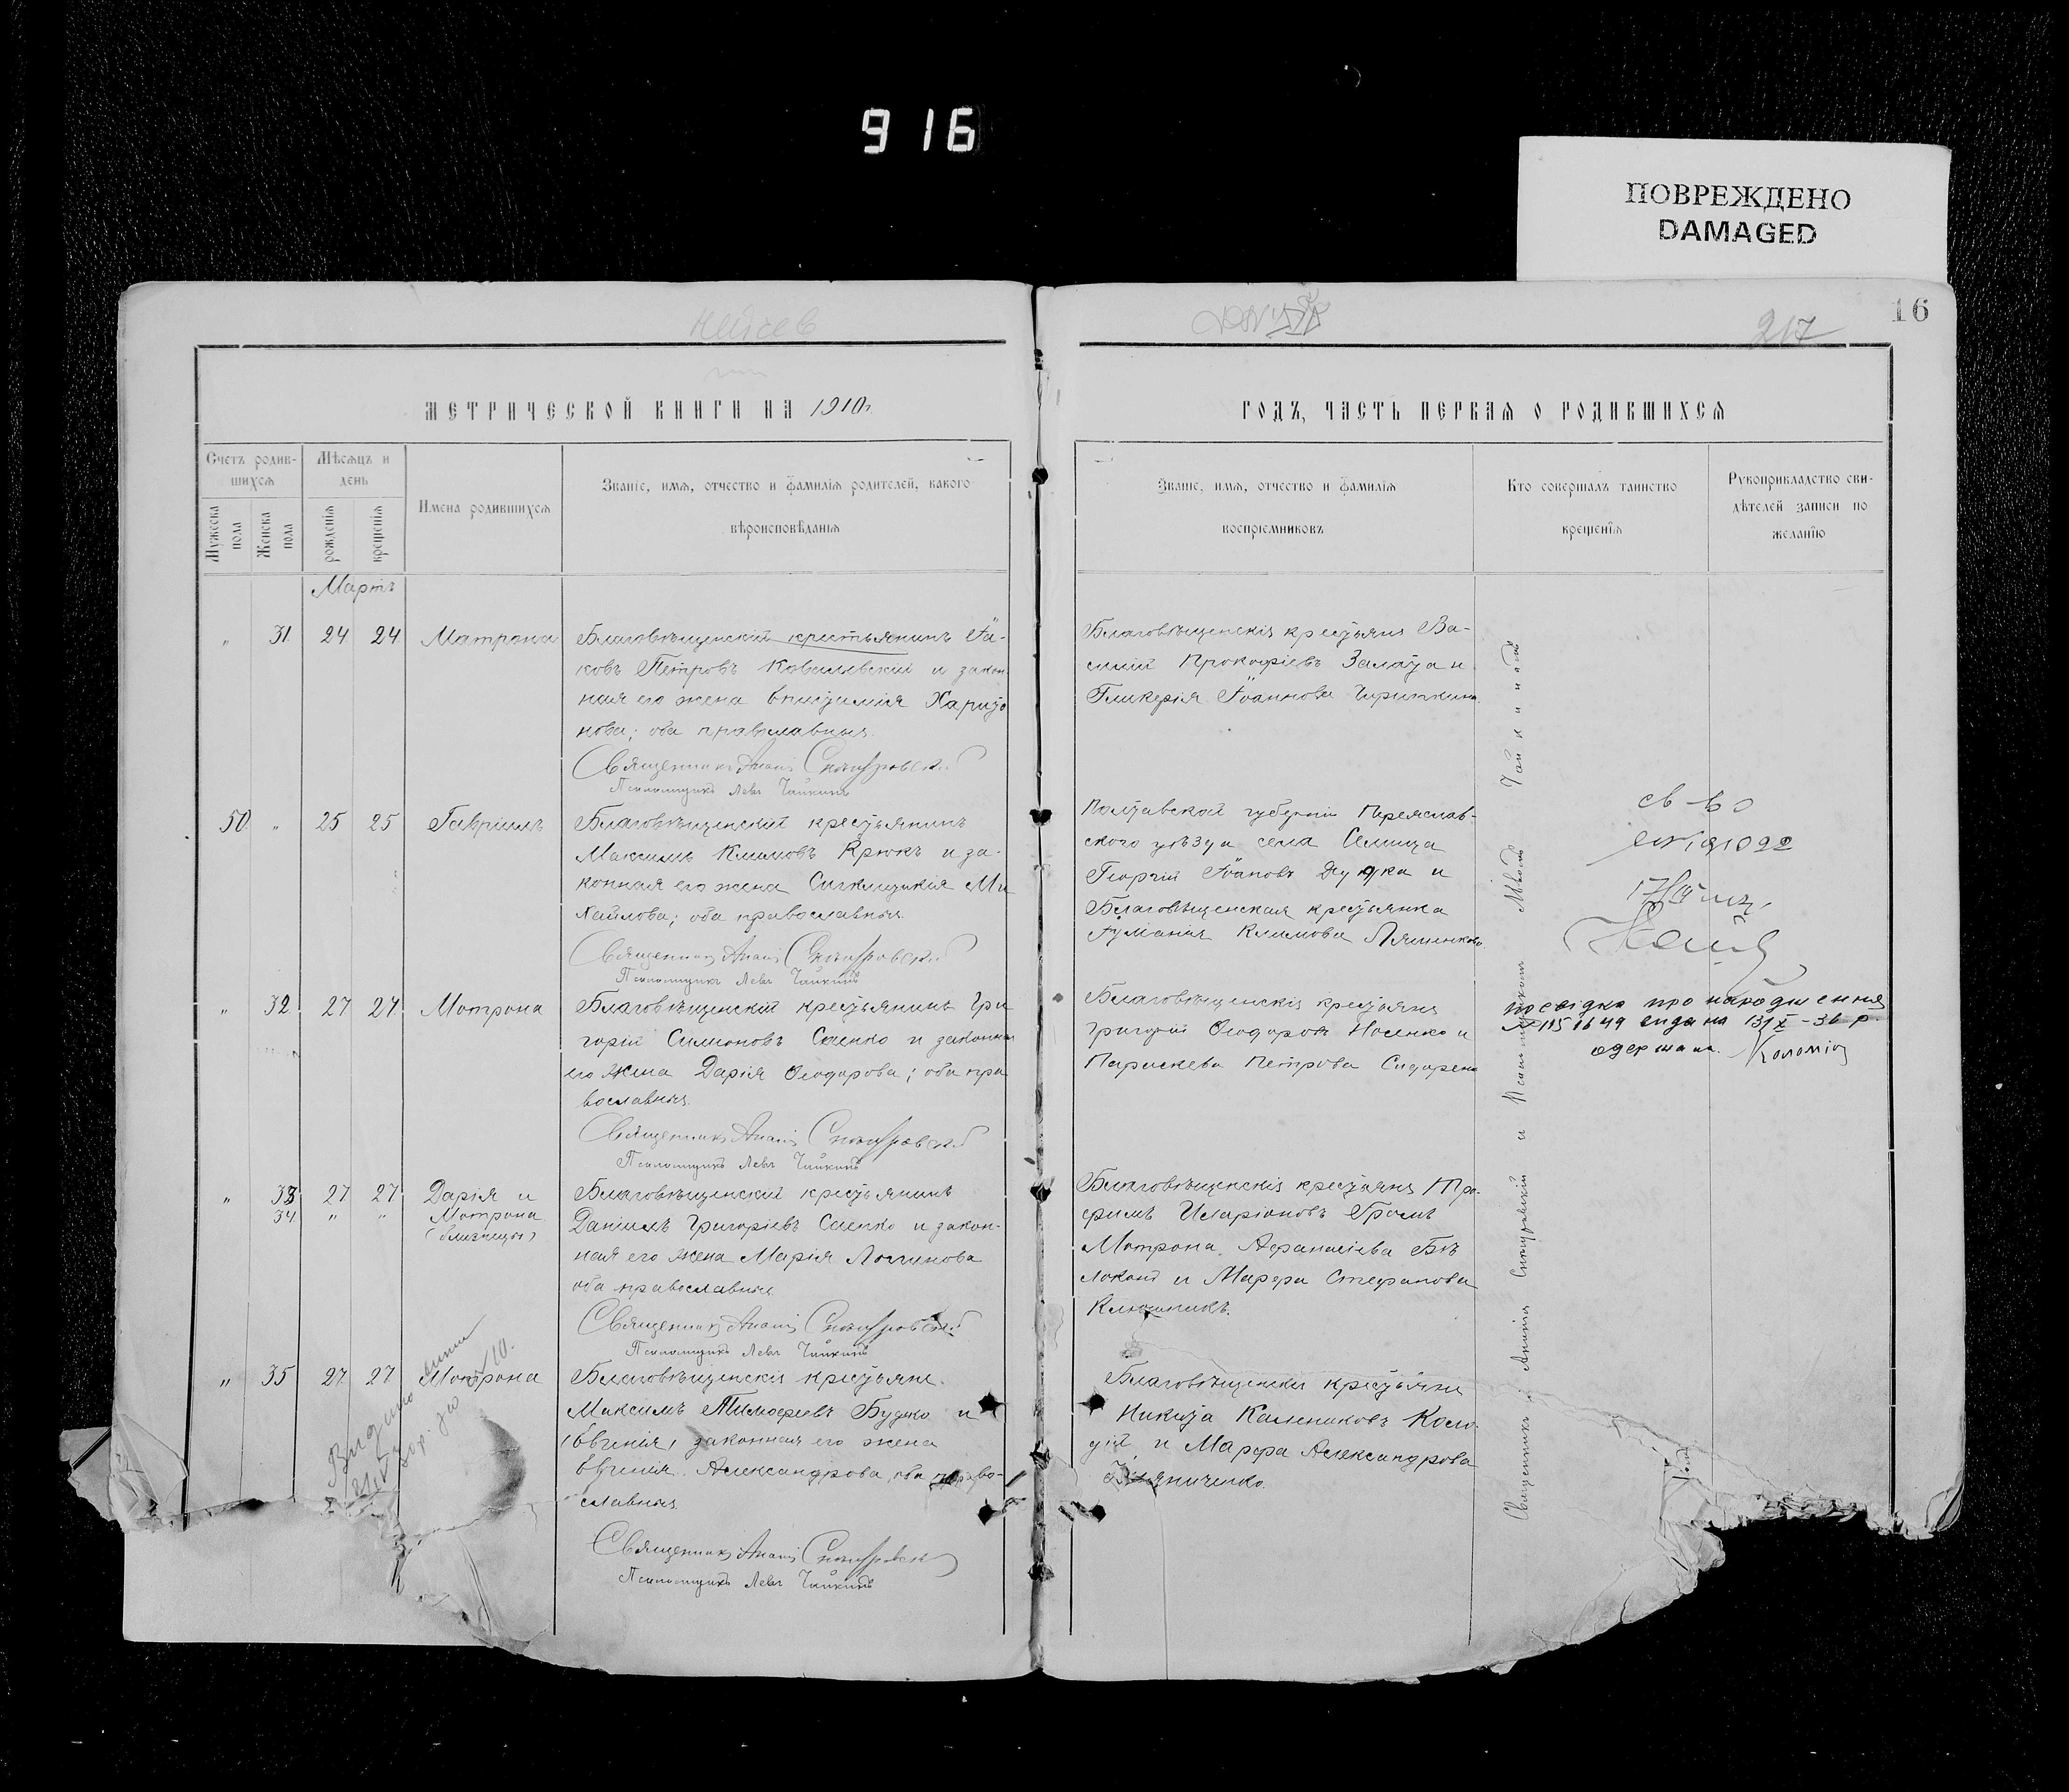 916
ПОВРЕЖДЕНО
DAMAGED
16
217
МЕТРИЧЕСКОЙ КНИГИ НА 1910 г.
ГОДЪ, ЧАСТЬ ПЕРВАЯ О РОДИВШИХСЯ
Счетъ родив-
шихся
Мужеска пола
Женска пола
Мѣсяцъ и
день
рожденія
крещенія
Имена родившихся
Званіе, имя, отчество и фамилія родителей, какого
вѣроисповѣданія
Званіе, имя, отчество и фамилія
воспріемниковъ
Кто совершалъ таинство
крещенія
Рукоприкладство сви-
дѣтелей записи по
желанію
Мартъ
" 31 24 24 Матрона
Благовѣщенскій крестьянинъ Іа-
ковъ Петровъ Ковалевскій и закон
ная его жена Харито
нова; оба православныя.
Священникъ Ананій
Псаломщикъ Левъ Чайкинъ
Благовѣщенскія крестьяне Ва-
силій Прокофіевъ и
Гликерія Іоаннова
50 " 25 25 Гавріилъ
Благовѣщенскій крестьянинъ
Максимъ Климовъ Крюкъ и за-
конная его жена Синклитикія Ми
хайлова; оба православныя.
Священникъ Ананій
Псаломщикъ Левъ Чайкинъ
Полтавской губерніи Переяслав-
ского уѣзда села Семища
Георгій Іоановъ Дудка и
Благовѣщенская крестьянка
Климова
св-во
" 32 27 27 Мотрона
Благовѣщенскій крестьянинъ Гри
горій Симоновъ Саенко и законная
его жена Дарія Ѳеодорова; оба пра
вославныя.
Священникъ Ананій
Псаломщикъ Левъ Чайкинъ
Благовѣщенскія крестьяне
Григорій Ѳеодоровъ Носенко и
Параскева Петрова Сидоренко
посвідка про народження
№ 1151649 видана 13/X-36 р.
одержала. Коломієц
" 33 27 27 Дарія и
34 " " Мотрона
(близнецы)
Благовѣщенскій крестьянинъ
Даніилъ Григоріевъ Саенко и закон-
ная его жена Марія Логинова
оба православныя
Священникъ Ананій
Псаломщикъ Левъ Чайкинъ
Благовѣщенскія крестьяне Тро-
фимъ Иларіоновъ Громъ
Мотрона Афанасіева Бѣ
локонь и Марфа Стефанова
Ключникъ.
" 35 27 27 Мотрона
Благовѣщенскія крестьяне
Максимъ Тимофеевъ Будко и
(Евгенія) законная его жена
Евгенія Александрова, оба право-
славныя
Священникъ Ананій
Псаломщикъ Левъ Чайкинъ
Благовѣщенскія крестьяне
Никита Калениковъ Коло-
дій и Марфа Александрова
Видано
Священникъ Ананія и Псаломщикъ Левъ Чайкинъ